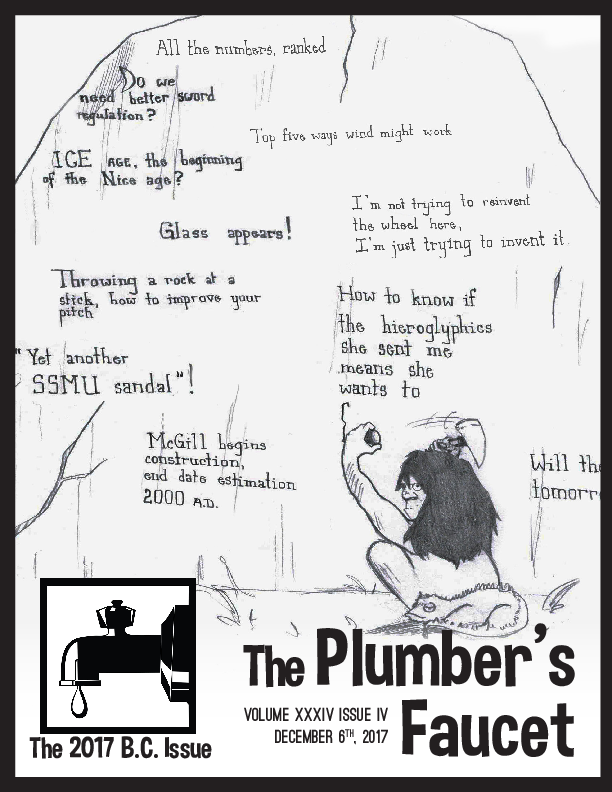 All the numbers, ranked
Do we
need better sword
regulation?
Top five ways wind might work
ICE AGE, the beginning
of the Nice age?
I'm not trying to reinvent
the wheel here,
I'm just trying to invent it.
Glass appears!
Throwing a rock at a
stick, how to improve your
pitch
How to know if
the hieroglyphics
she sent me
means she
wants to
"Yet another
SSMU sandal"!
McGill begins
construction,
end date estimation
2000 A.D.
Will th
tomorr
The Plumber's
Faucet
VOLUME XXXIV ISSUE IV
DECEMBER 6TH, 2017
The 2017 B.C. Issue